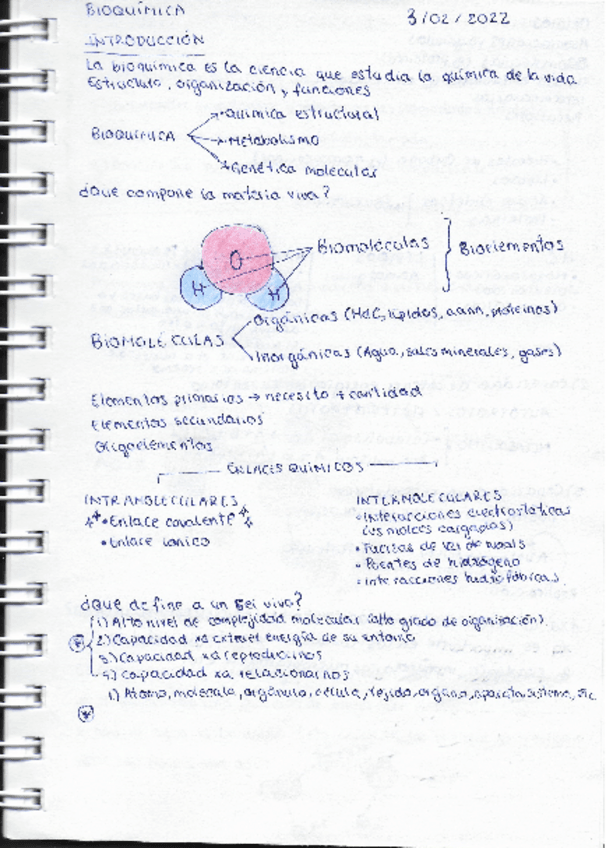 BIOQUÍMICA
3/02/2022
INTRODUCCIÓN
La bioquímica es la ciencia que estudia la química de la vida
Estructura, organización y funciones
BIOQUÍMICA
Química estructural
Metabolismo
Genética molecular
¿Que compone la materia viva?
O
H
H
Biomoléculas
Bioelementos
BIOMOLÉCULAS
Orgánicas (HdC, lípidos, aann, proteínas)
Inorgánicas (Agua, sales minerales, gases)
Elementos primarios → necesito + cantidad
Elementos secundarios
Oligoelementos
ENLACES QUÍMICOS
INTRAMOLECULARES
INTERMOLECULARES
• Enlace covalente
• Enlace iónico
• Interacciones electrostáticas
cargadas)
• Fuerzas de Van der Waals
• Puentes de hidrógeno
• Interacciones hidrofóbicas
¿Que define a un ser vivo?
1) Alto nivel de complejidad molecular (alto grado de organización).
2) Capacidad xa extraer energía de su entorno
3) Capacidad xa reproducirnos
4) Capacidad xa relacionarnos
1) Átomo, molécula, orgánulo, célula, tejido, órgano, aparato, sistema, etc